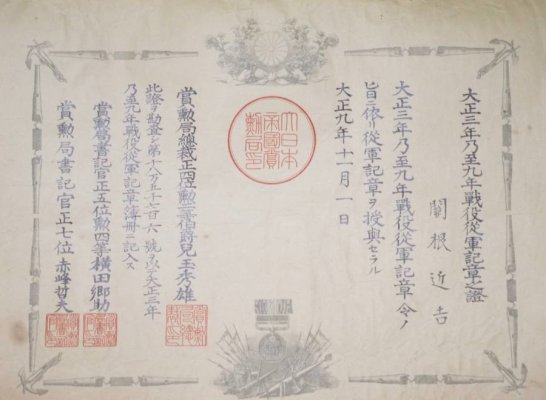 大正三年乃至九年戦役従軍記章之證
關根近吉
大正三年乃至九年戦役従軍記章令ノ
旨ニ依リ従軍記章ヲ授與セラル
大正九年十一月一日
大日本
帝國賞
勲局印
賞勲局總裁正四位勲二等伯爵兒玉秀雄
此證ヲ勘査シ第十八万五千七百六號ヲ以テ大正三年
乃至九年戦役従軍記章簿冊ニ記入ス
賞勲局書記官正五位勲四等横田郷助
賞勲局書記官正七位赤峰哲夫